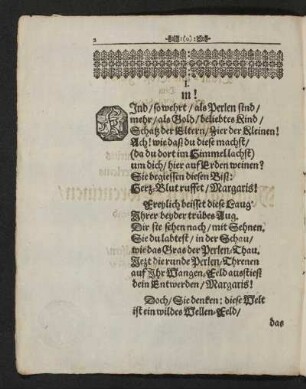 2
:(0):
I.
m!
KInd/ so wehrt/ als Perlen sind/
mehr/ als Gold/ beliebtes Kind/
Schatz der Eltern/ Zier der Kleinen!
Ach! wie daß du diese machst/
(da du dort im Himmel lachst)
um dich/ hier auf Erden weinen?
Sie begiessen diesen Biß:
Hertz-Blut ruffet/ Margaris!
Freylich beisset diese Laug'
Ihrer beyder trübes Aug.
Dir sie sehen nach/ mit Sehnen,
Sie du labtest/ in der Schau/
wie das Gras der Perlen-Thau.
Jezt die runde Perlen/ Threnen
auf Ihr Wangen-Feld ausstiest
dein Entwerden/ Margaris!
Doch/ Sie denken: diese Welt
ist ein wildes Wellen-Feld/
das